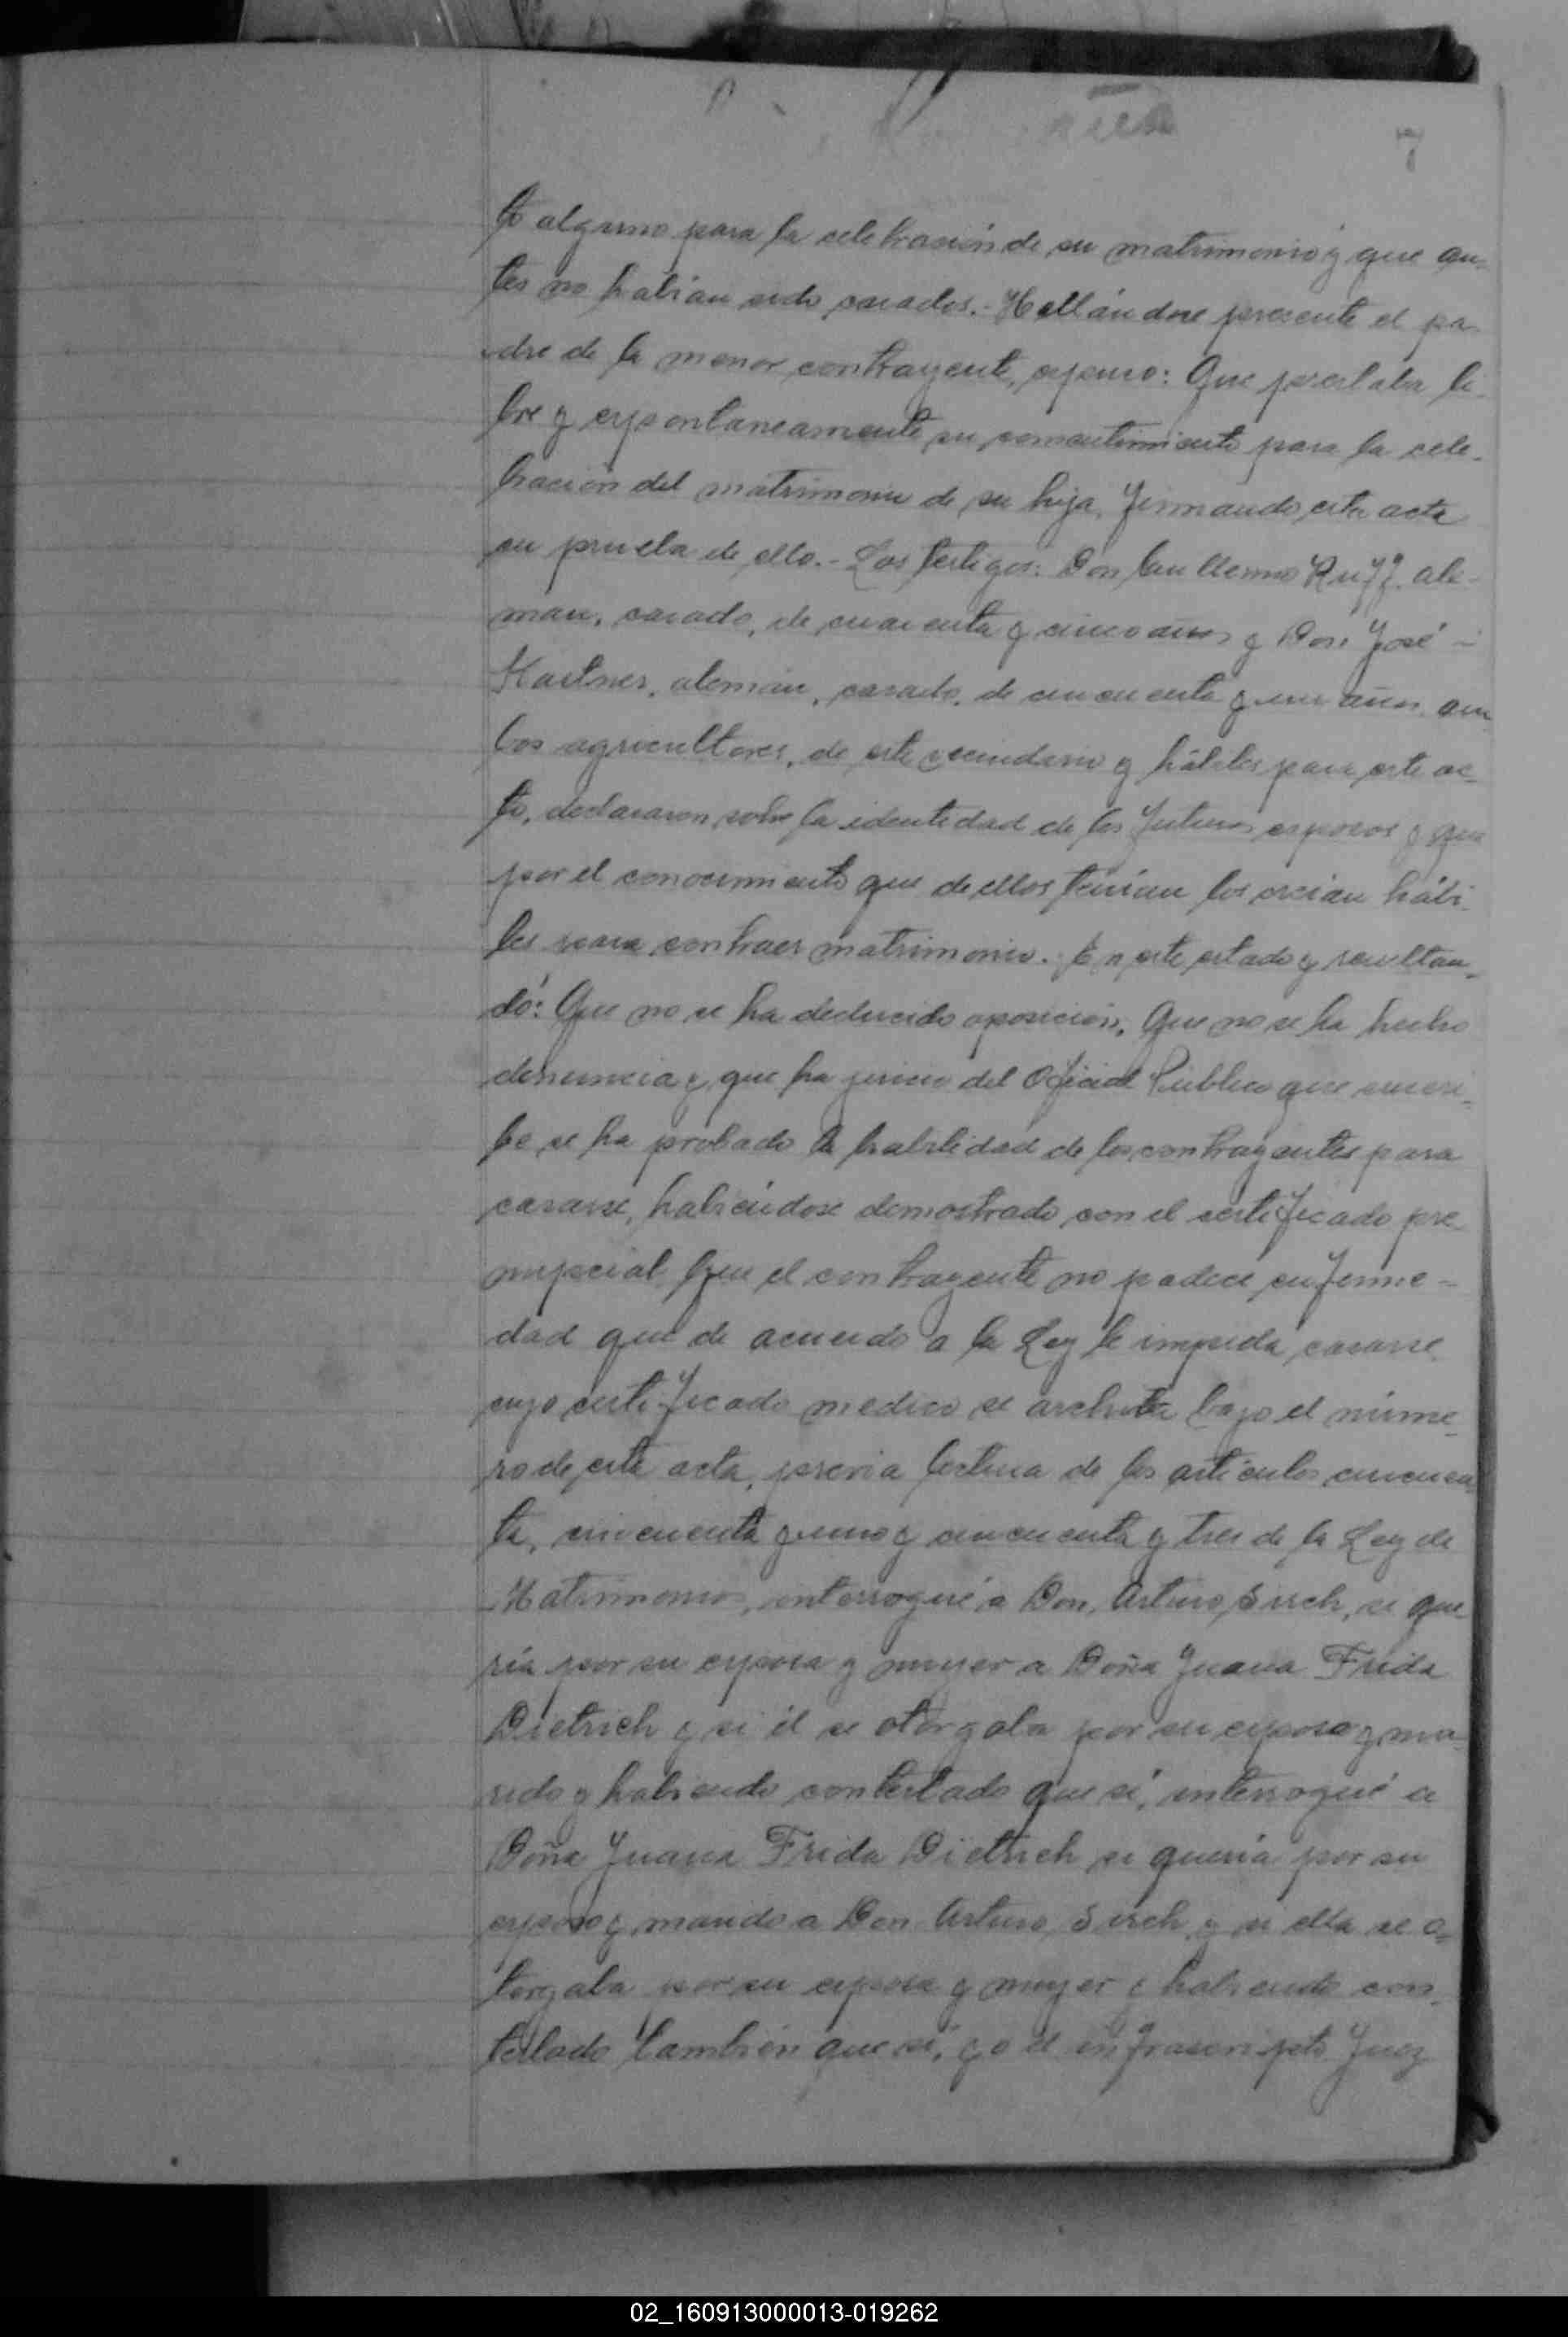 7
to alguno para la celebración de su matrimonio y que an-
tes no habían sido casados.- Hallándose presente el pa-
dre de la menor contrayente, expuso: Que prestaba li-
bre y espontaneamente su consentimiento para la cele-
bración del matrimonio de su hija, firmando esta acta
en prueba de ello.- Los testigos: Don Guillermo Ruff, ale-
man, casado, de cuarenta y cinco años y Don José -
Kastner, alemán, casado, de cincuenta y un años, am-
bos agricultores, de este vecindario y hábiles para este ac-
to, declararon sobre la identidad de los futuros esposos y que
por el conocimiento que de ellos tenían los creían hábi-
les para contraer matrimonio. En este estado y resultan-
do: Que no se ha deducido oposición, Que no se ha hecho
denuncia y que ha juicio del Oficial Público que suscri-
be se ha probado la habilidad de los contrayentes para
casarse, habiéndose demostrado con el certificado pre
nupcial que el contrayente no padece enferme-
dad que de acuerdo a la Ley le impida casarse,
cuyo certificado medico se archiva bajo el núme-
ro de esta acta, previa lectura de los artículos cincuen
ta, cincuenta y uno y cincuenta y tres de la Ley de
Matrimonios, interrogué a Don Arturo Sirch, si que-
ría por su esposa y mujer a Doña Juana Frida
Dietrich y si él se otorgaba por su esposo y ma-
rido y habiendo contestado que sí, interrogué a
Doña Juana Frida Dietrich si quería por su
esposo y marido a Don Arturo Sirch y si ella se o-
torgaba por su esposa y mujer y habiendo con-
testado también que sí, yo el infrascripto Juez
02_160913000013-019262